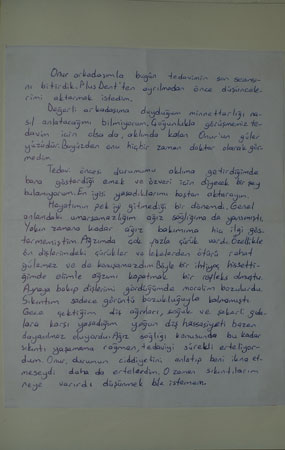 Onur arkadaşımla bugün tedavimin son seansı-
nı bitirdik. PlusDent'ten ayrılmadan önce düşüncele-
rimi aktarmak istedim.
Değerli arkadaşıma duyduğum minnettarlığı na-
sıl anlatacağımı bilmiyorum. Çoğunlukla görüşmemiz te-
davim için olsa da aklımda kalan Onur'un güler
yüzüdür. Bu yüzden onu hiçbir zaman doktor olarak gör-
medim.
Tedavi öncesi durumumu aklıma getirdiğimde
bana gösterdiği emek ve özveri için diyecek bir şey
bulamıyorum. En iyisi yaşadıklarımı baştan aktarayım.
Hayatımın pek iyi gitmediği bir dönemdi. Genel
anlamdaki umarsamazlığım ağız sağlığıma da yansımıştı.
Yakın zamana kadar ağız bakımıma hiç ilgi gös-
termemiştim. Ağzımda çok fazla çürük vardı. Özellikle
ön dişlerimdeki çürükler ve lekelerden ötürü rahat
gülemez ya da konuşamazdım. Böyle bir ihtiyaç hissetti-
ğimde elimle ağzımı kapatmak bir refleks olmuştu.
Aynaya bakıp dişlerimi gördüğümde moralim bozulurdu.
Sıkıntım sadece görüntü bozukluğuyla kalmamıştı.
Gece çektiğim diş ağrıları, soğuk ve şekerli gıda-
lara karşı yaşadığım yoğun diş hassasiyeti bazen
dayanılmaz oluyordu. Ağız sağlığı konusunda bu kadar
sıkıntı yaşamama rağmen, tedaviyi sürekli erteliyor-
dum. Onur, durumun ciddiyetini anlatıp beni ikna et-
meseydi daha da ertelerdim. O zaman sıkıntılarım
neye varırdı düşünmek bile istemem.